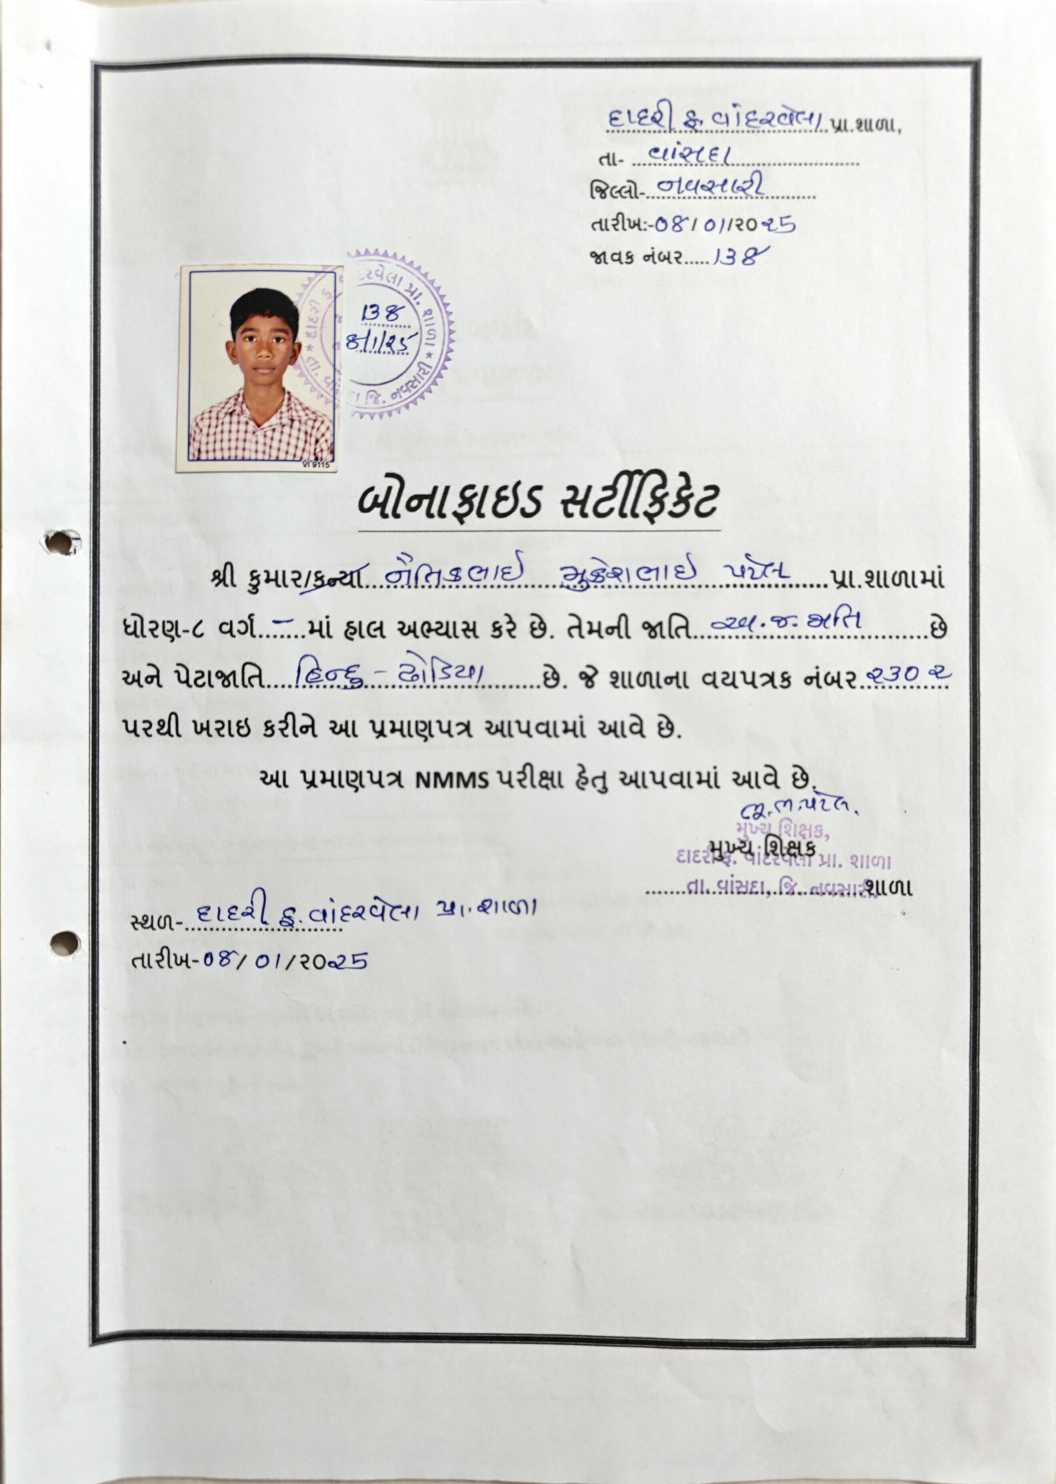 દાદરી ફ. વાંદરવેલા પ્રા.શાળા,
તા- વાંસદા
જિલ્લો- નવસારી
તારીખ:-૦૪/૦૧/૨૦૨5
જાવક નંબર.....૧૩૪
૧૩૪
૪/૧/૨5
VI 9115
બોનાફાઇડ સર્ટીફિકેટ
શ્રી કુમાર/કન્યા નૈતિકભાઈ મુકેશભાઈ પટેલ પ્રા.શાળામાં
ધોરણ-૮ વર્ગ...–...માં હાલ અભ્યાસ કરે છે. તેમની જાતિ અ.જ.જાતિ છે
અને પેટાજાતિ હિન્દુ - ઢોડિયા છે. જે શાળાના વયપત્રક નંબર ૨૩૦૨
પરથી ખરાઇ કરીને આ પ્રમાણપત્ર આપવામાં આવે છે.
આ પ્રમાણપત્ર NMMS પરીક્ષા હેતુ આપવામાં આવે છે.
મુખ્ય શિક્ષક,
મુખ્ય શિક્ષક
દાદરી ફ. વાંદરવેલા પ્રા. શાળા
તા. વાંસદા, જિ. નવસારી
શાળા
સ્થળ- દાદરી ફ. વાંદરવેલા પ્રા.શાળા
તારીખ-૦૪/૦૧/૨૦૨5